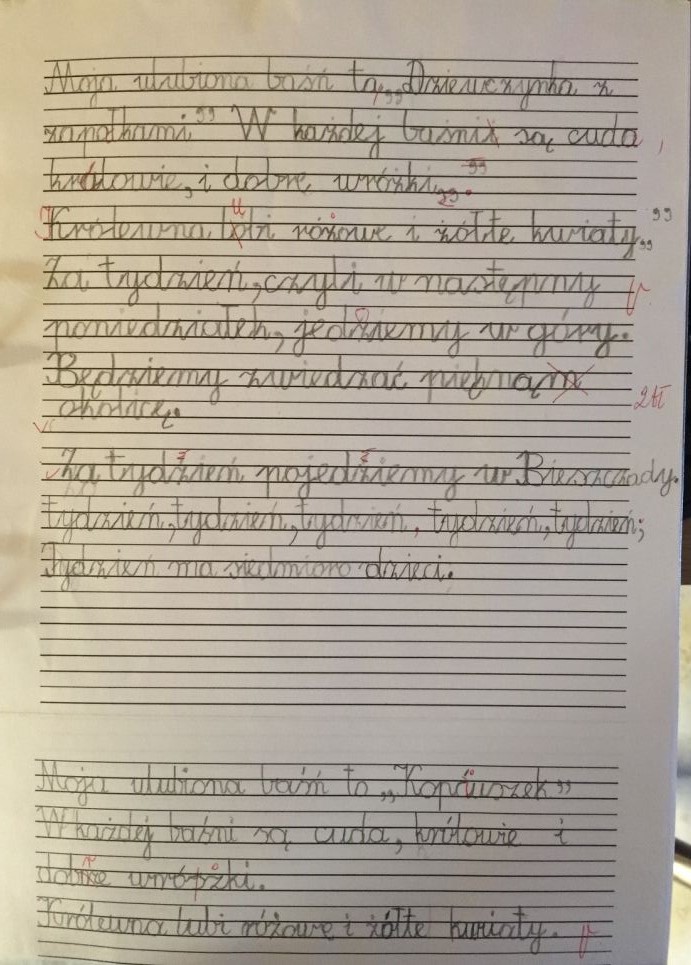 Moja ulubiona baśń to „Dziewczynka z
zapałkami” W każdej baśni są cuda,
królowie, i dobre wróżki.
Królewna lubi różowe i żółte kwiaty
Za tydzień, czyli w następny
poniedziałek, jedziemy w góry.
Będziemy zwiedzać piękną
okolicę.
Za tydzień pojedziemy w Bieszczady.
tydzień, tydzień, tydzień, tydzień, tydzień;
Tydzień ma siedmioro dzieci.
Moja ulubiona baśń to „Kopciuszek”
W każdej baśni są cuda, królowie i
dobre
Królewna lubi różowe i żółte kwiaty.